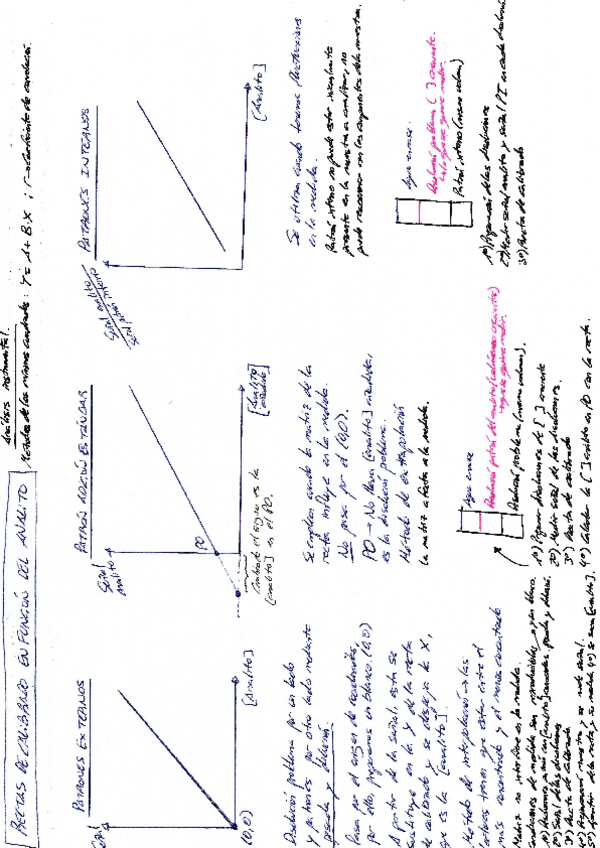 Análisis instrumental.
RECTAS DE CALIBRADO EN FUNCIÓN DEL ANALITO
Método de los mínimos cuadrados: Y = A + B·X ; r → coeficiente de
PATRONES EXTERNOS
Señal
(0,0)
[Analito]
Disolución problema por un lado
y patrones por otro lado mediante
pesada y dilución.
Pasan por el origen de coordenadas,
por ello, preparamos un blanco. (0,0)
A partir de la señal, esta se
sustituye en la Y de la recta
de calibrado y se despeja la X,
que es la [analito].
Método de interpolación → las
lecturas tienen que estar entre el
más concentrado y el menos concentrado
Matriz no interviene en la medida.
Condiciones de medida son reproducibles
2º) Señal de las disoluciones
3º) Recta de calibrado
PATRÓN ADICIÓN ESTÁNDAR
Señal
analito
PO
[Analito]
añadido
Cambiado el signo es la
[analito] en el PO.
Se emplean cuando la matriz de la
recta influye en la medida.
No pasa por el (0,0).
PO → No lleva [analito] añadido,
es la disolución problema.
Método de extrapolación
La matriz afecta a la medida.
Agua enrase
Disolución patrón del analito (volúmenes crecientes)
→ que se quiere medir.
Disolución problema (mismo volumen).
1º) Preparar disoluciones de [ ] creciente
2º) Medir señal de las disoluciones.
3º) Recta de calibrado
4º) Calcular la [ ] analito en PO con la recta.
PATRONES INTERNOS
Señal analito
Señal patrón interno
[Analito]
Se utilizan cuando tenemos fluctuaciones
en la medida.
Patrón interno no puede estar inicialmente
presente en la muestra a analizar, no
puede reaccionar con los componentes de la muestra.
Agua enrase.
Disolución problema [ ] creciente.
→ lo que se quiere medir.
Patrón interno (mismo volumen)
1º) Preparación de las disoluciones
2º) Medir señal analito y señal PI en cada disolución
3º) Recta de calibrado